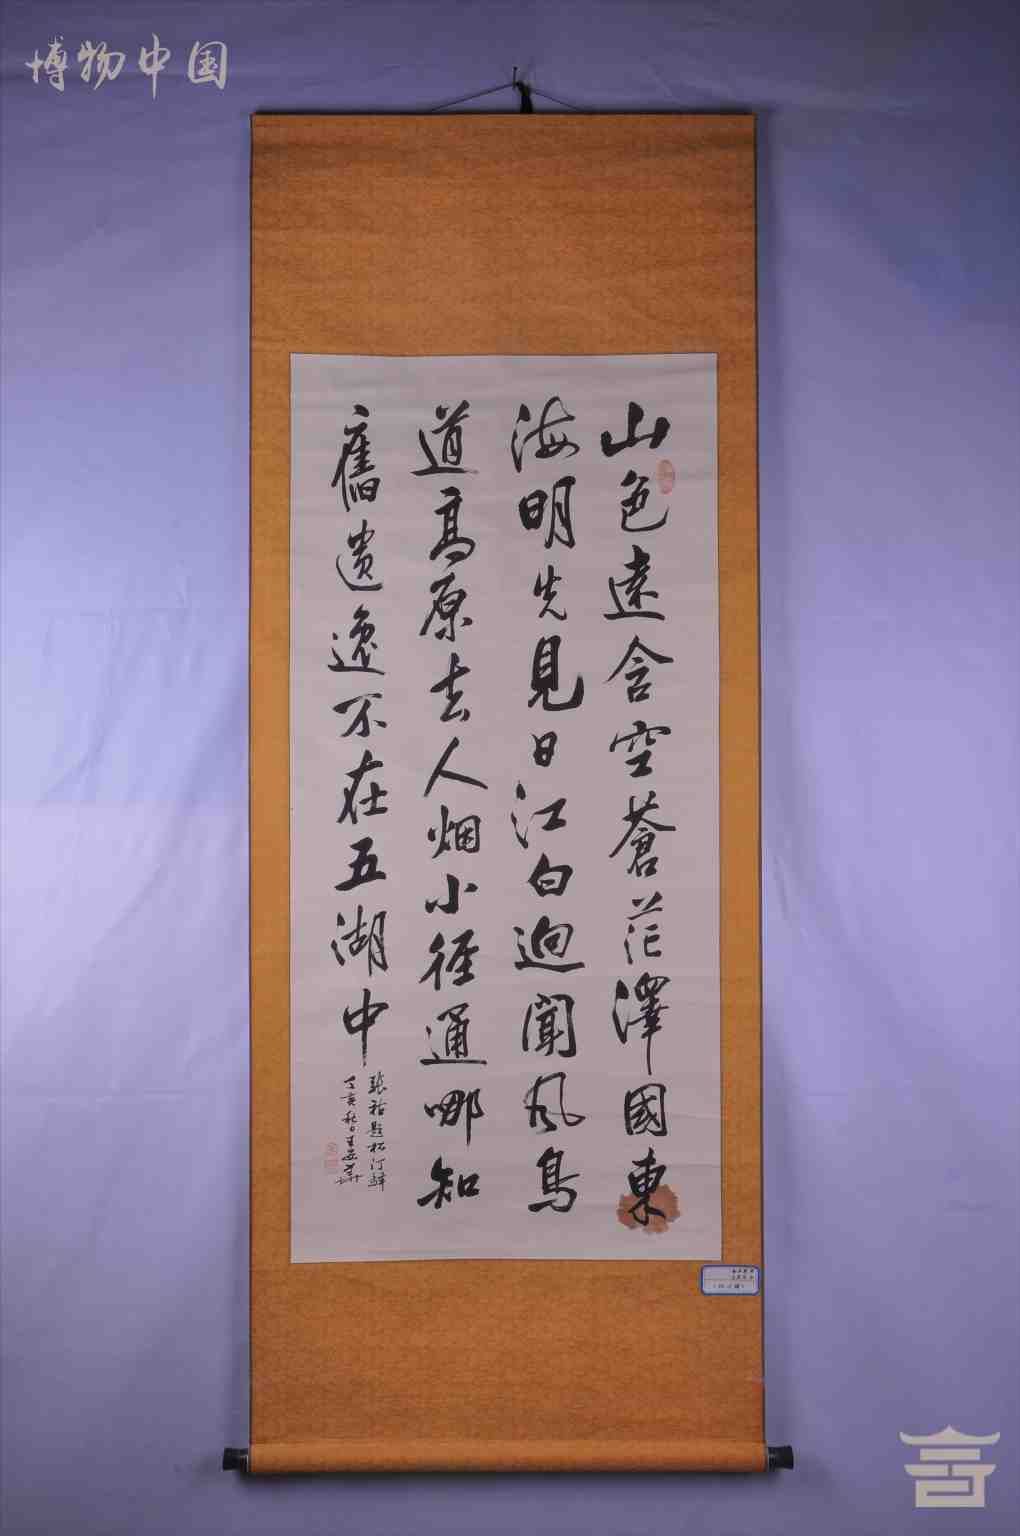 博物中国
山色遠含空蒼茫澤國東
海明先見日江白迥聞風鳥
道高原去人烟小徑通哪知
舊遺逸不在五湖中
張祜題松汀驛
丁亥秋日王